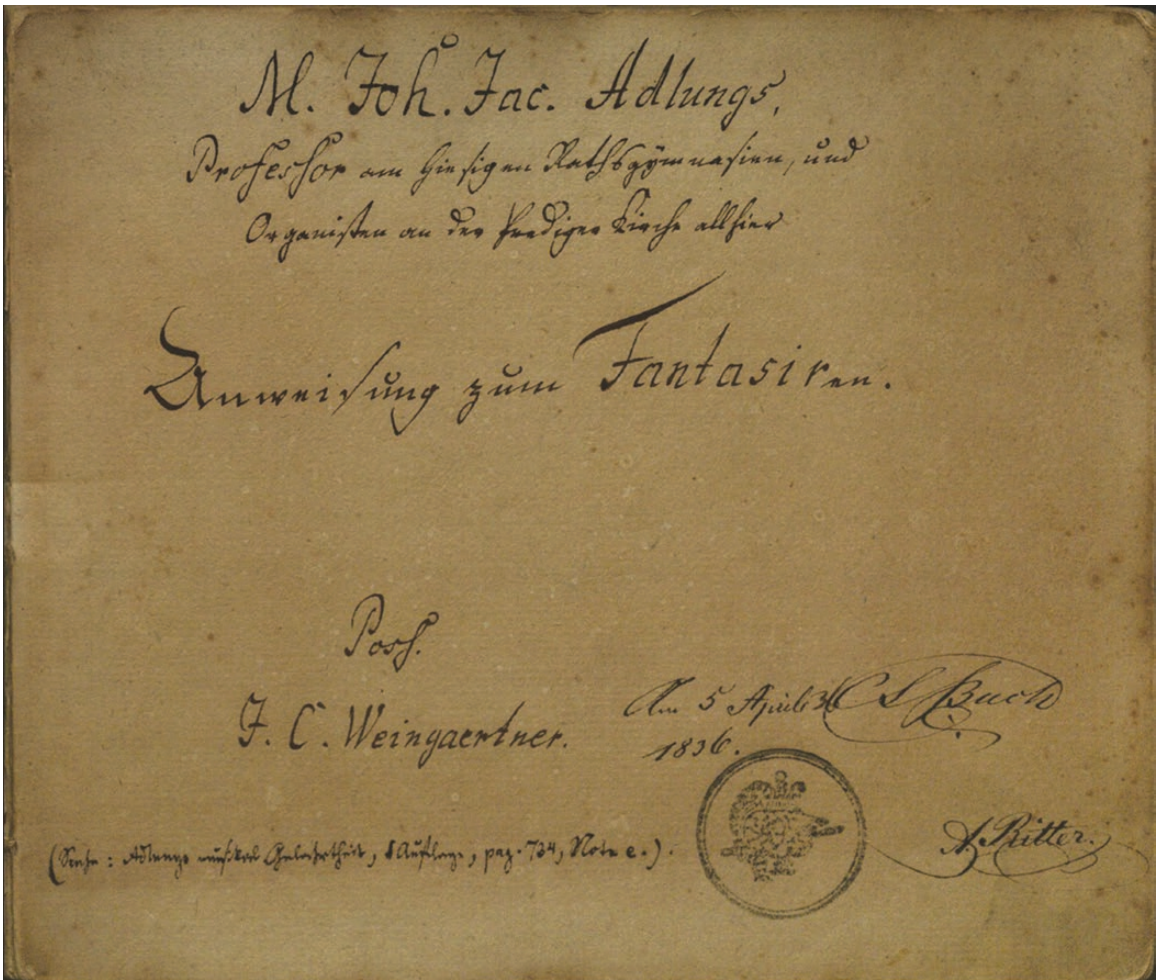 M. Joh. Jac. Adlungs,
Professor am hiesigen Rathsgÿmnasien, und
Organisten an der Prediger Kirche allhier
Anweisung zum Fantasiren.
Poss.
J. C. Weingaertner.
Am 5 April 36 Bach
1836.
(Siehe: Adlungs musikal Gelahrtheit, Auflage, pag. 734, Note e.).
A. Ritter.